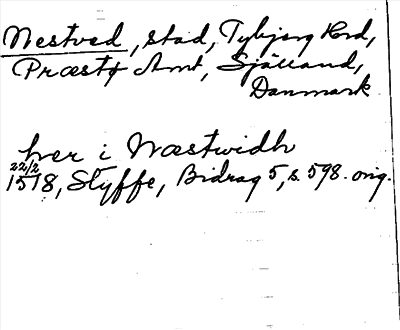 Nestved, stad, Tybjerg Hrd,
Præstø Amt, Sjælland,
Danmark
her i Næstwidh
22/2
1518, Styffe, Bidrag 5, s. 598. orig.